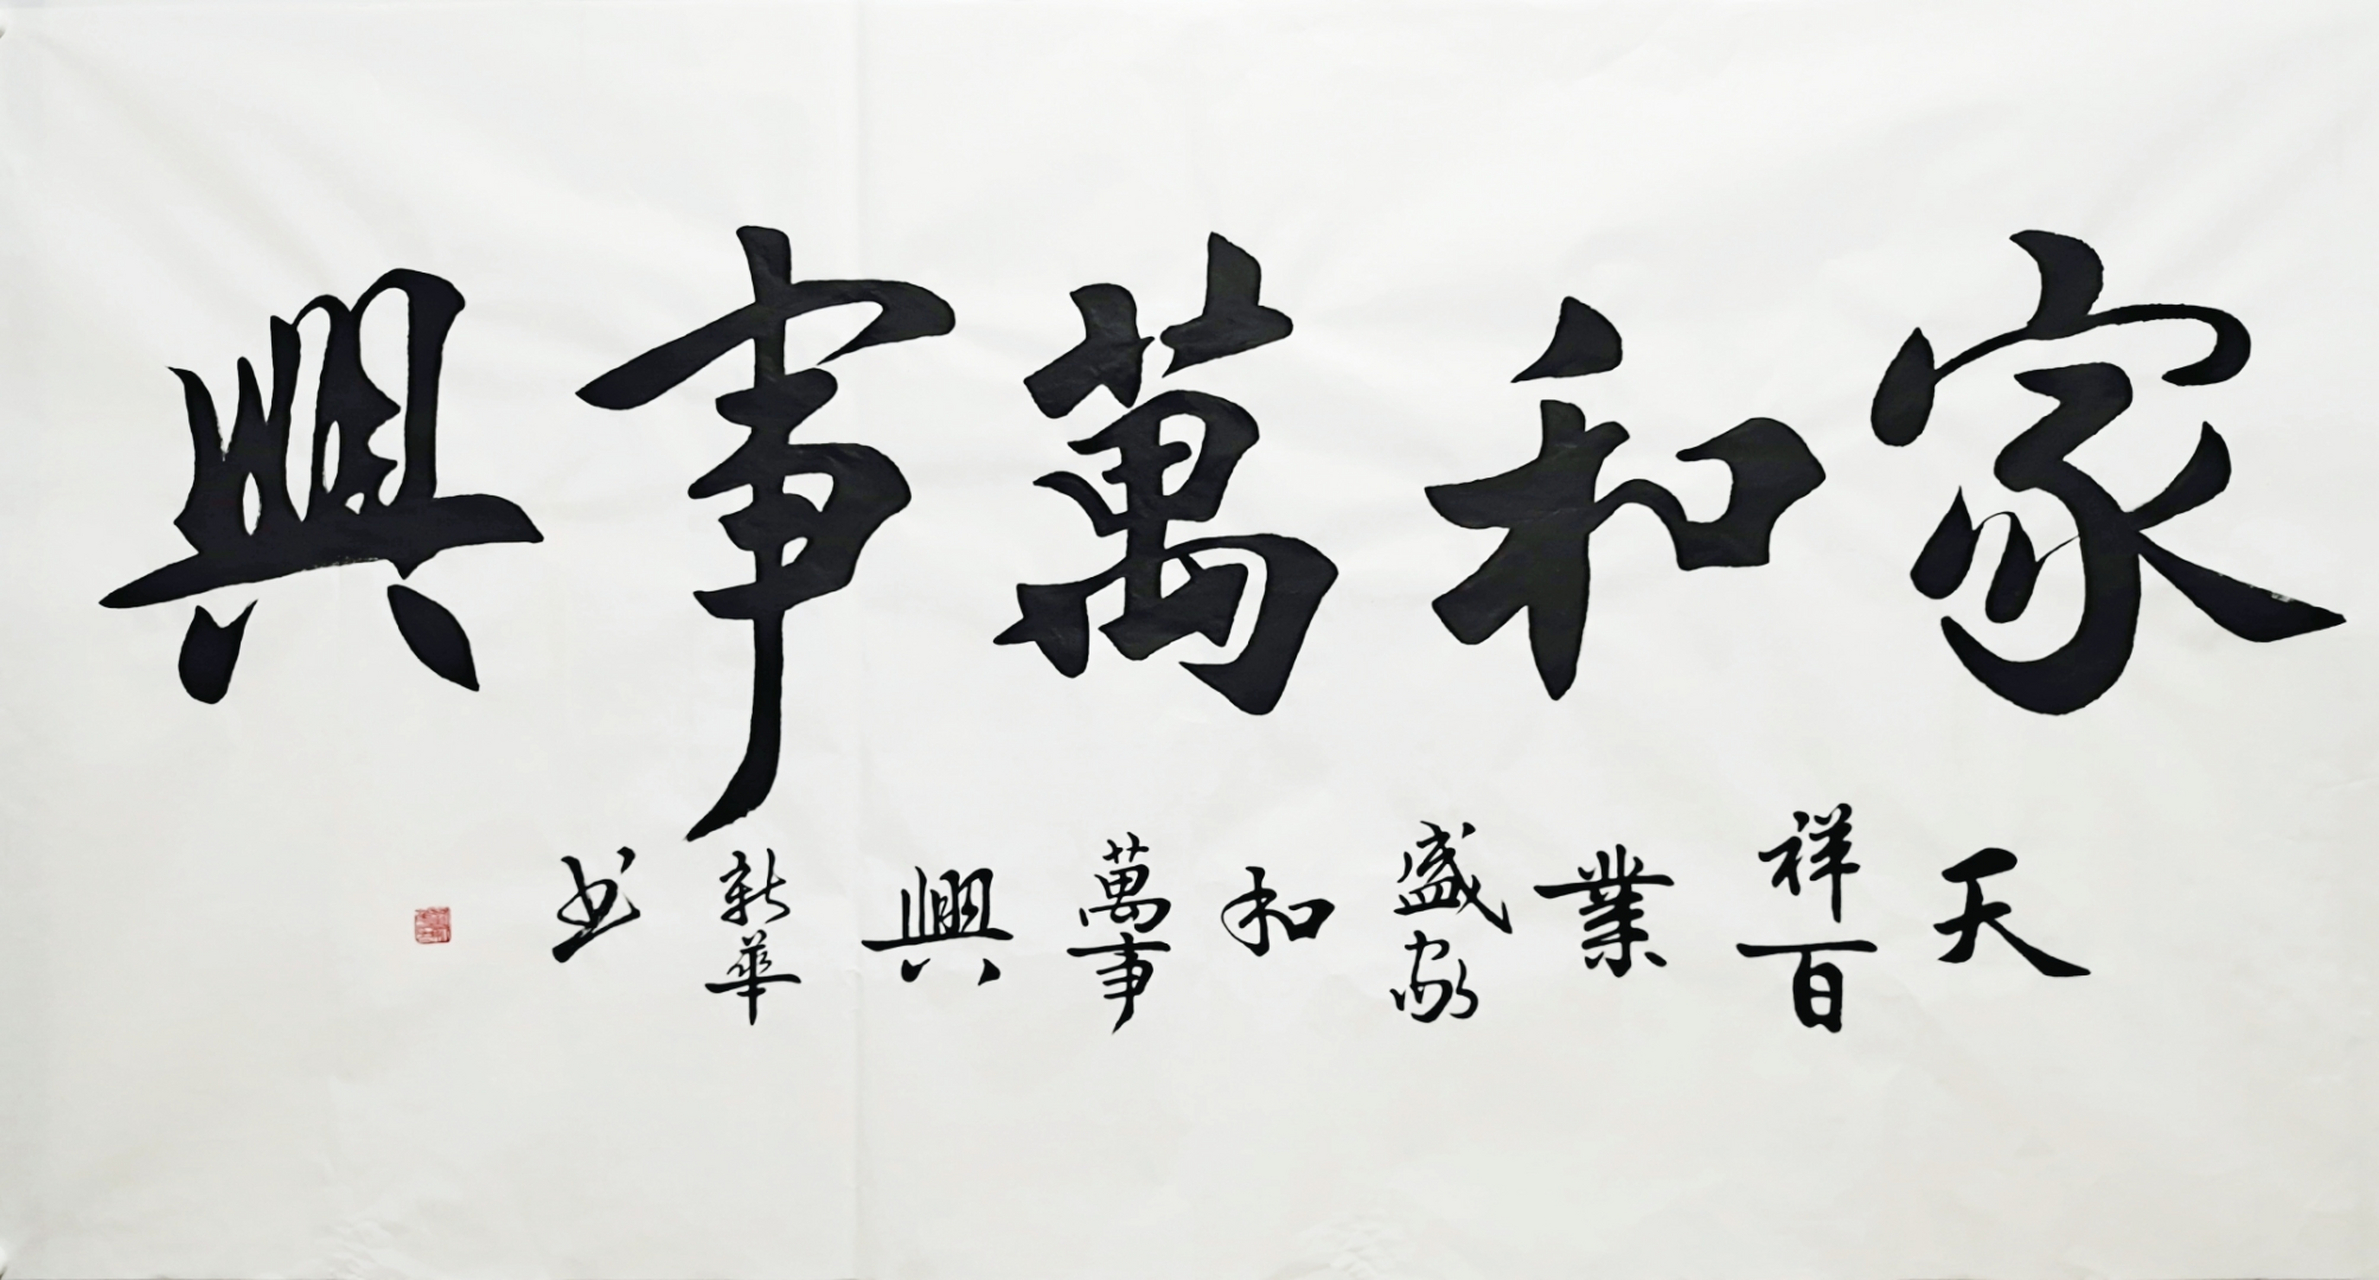 家和萬事興
天祥百業盛家和萬事興新華书